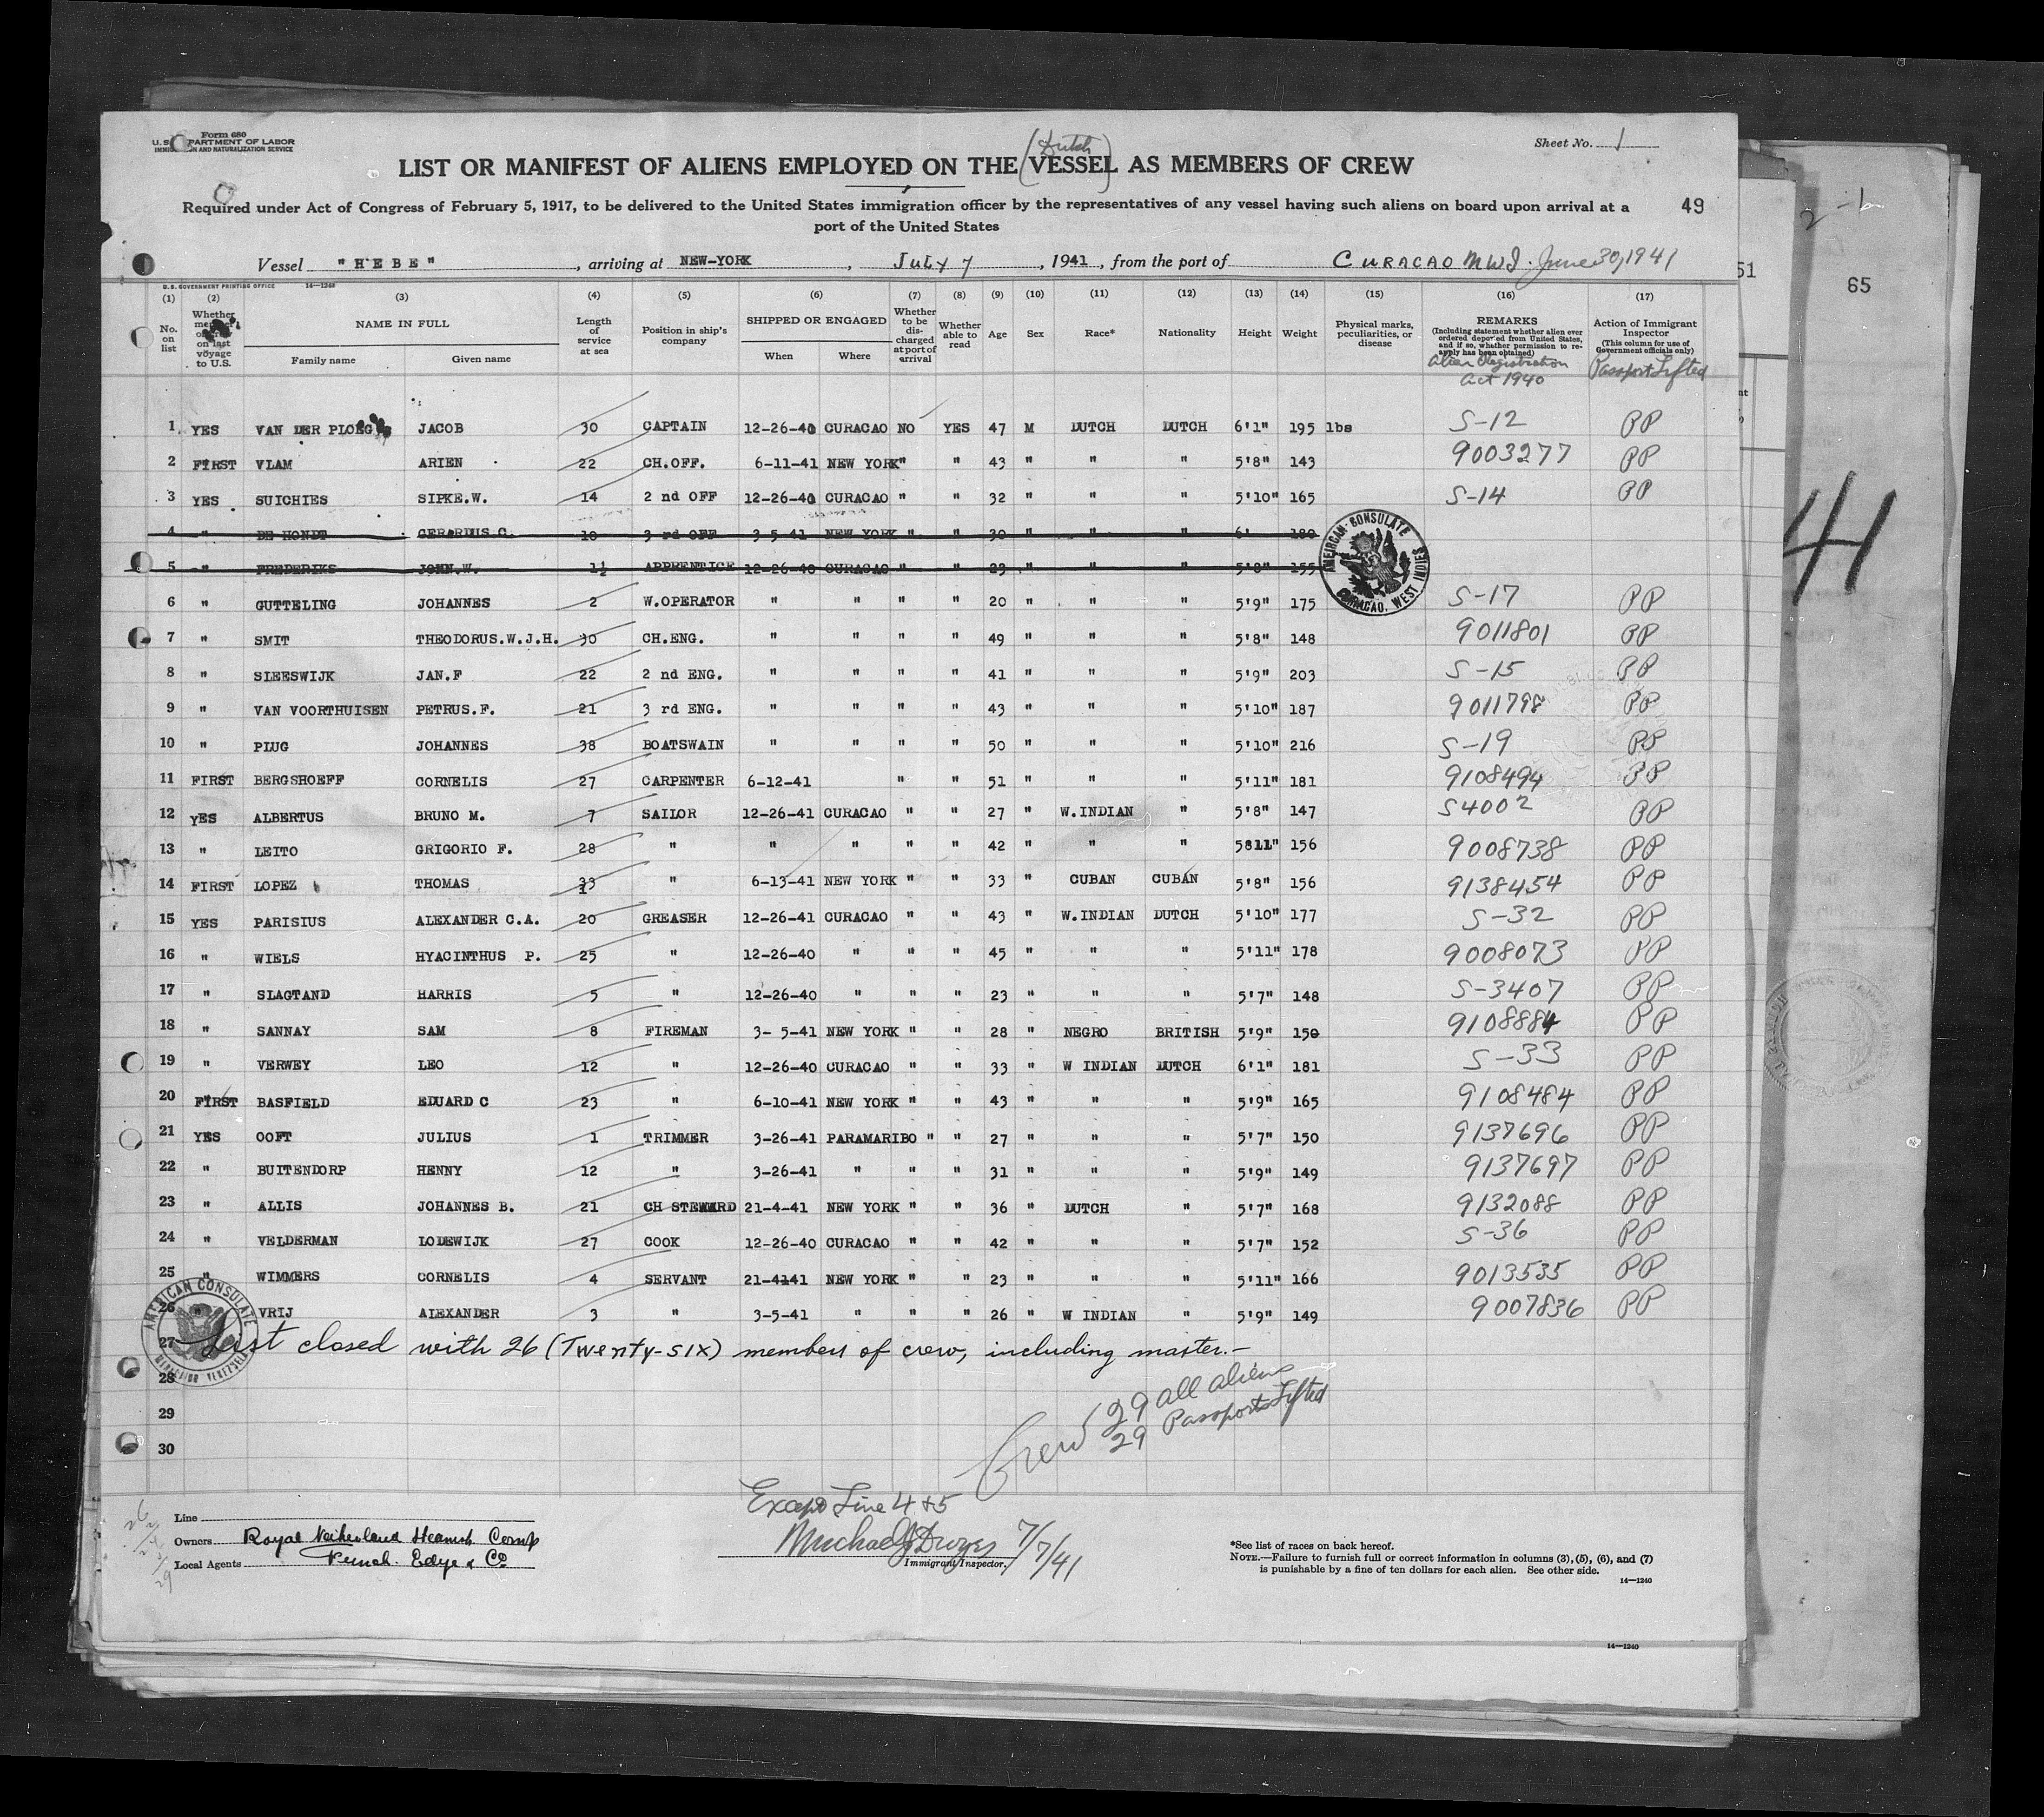 Form 680
U.S. DEPARTMENT OF LABOR
IMMIGRATION AND NATURALIZATION SERVICE
Sheet No. 1
(Dutch)
LIST OR MANIFEST OF ALIENS EMPLOYED ON THE VESSEL AS MEMBERS OF CREW
Required under Act of Congress of February 5, 1917, to be delivered to the United States immigration officer by the representatives of any vessel having such aliens on board upon arrival at a
port of the United States
49
Vessel "HEBE", arriving at NEW-YORK, July 7, 1941, from the port of CURACAO NWI. June 30, 1941
U. S. GOVERNMENT PRINTING OFFICE 14—1240
(1) (2) (3) (4) (5) (6) (7) (8) (9) (10) (11) (12) (13) (14) (15) (16) (17)
No. on list
Whether member of crew on last voyage to U.S.
NAME IN FULL
Family name Given name
Length of service at sea
Position in ship's company
SHIPPED OR ENGAGED
When Where
Whether to be discharged at port of arrival
Whether able to read
Age
Sex
Race*
Nationality
Height
Weight
Physical marks, peculiarities, or disease
REMARKS
(Including statement whether alien ever ordered deported from United States, and if so, whether permission to re-apply has been obtained)
Alien Registration Act 1940
Action of Immigrant Inspector
(This column for use of Government officials only)
Passport Lifted
1 YES VAN DER PLOEG JACOB 30 CAPTAIN 12-26-40 CURACAO NO YES 47 M DUTCH DUTCH 6'1" 195 lbs S-12 PP
2 FIRST VLAM ARIEN 22 CH.OFF. 6-11-41 NEW YORK " " 43 " " " 5'8" 143 9003277 PP
3 YES SUICHIES SIPKE.W. 14 2 nd OFF 12-26-40 CURACAO " " 32 " " " 5'10" 165 S-14 PP
4 " DE HONDT GERARDUS.C. 18 3 rd OFF 3-5-41 NEW YORK " " 30 " " " 6' 180
5 " FREDERIKS JOHN.W. 1½ APPRENTICE 12-26-40 CURACAO " " 23 " " " 5'8" 155
AMERICAN CONSULATE CURACAO, WEST INDIES
6 " GUTTELING JOHANNES 2 W.OPERATOR " " " " 20 " " " 5'9" 175 S-17 PP
7 " SMIT THEODORUS.W.J.H. 30 CH.ENG. " " " " 49 " " " 5'8" 148 9011801 PP
8 " SLEESWIJK JAN.F 22 2 nd ENG. " " " " 41 " " " 5'9" 203 S-15 PP
9 " VAN VOORTHUISEN PETRUS.F. 21 3 rd ENG. " " " " 43 " " " 5'10" 187 9011798 PP
10 " PLUG JOHANNES 38 BOATSWAIN " " " " 50 " " " 5'10" 216 S-19 PP
11 FIRST BERGSHOEFF CORNELIS 27 CARPENTER 6-12-41 " " 51 " " " 5'11" 181 9108494 PP
12 YES ALBERTUS BRUNO M. 7 SAILOR 12-26-41 CURACAO " " 27 " W.INDIAN " 5'8" 147 S4002 PP
13 " LEITO GRIGORIO F. 28 " " " " " 42 " " " 5811" 156 9008738 PP
14 FIRST LOPEZ THOMAS " 6-13-41 NEW YORK " " 33 " CUBAN CUBAN 5'8" 156 9138454 PP
15 YES PARISIUS ALEXANDER C.A. 20 GREASER 12-26-41 CURACAO " " 43 " W.INDIAN DUTCH 5'10" 177 S-32 PP
16 " WIELS HYACINTHUS P. 25 " 12-26-40 " " " 45 " " " 5'11" 178 9008073 PP
17 " SLAGTAND HARRIS 5 " 12-26-40 " " " 23 " " " 5'7" 148 S-3407 PP
18 " SANNAY SAM 8 FIREMAN 3- 5-41 NEW YORK " " 28 " NEGRO BRITISH 5'9" 150 9108884 PP
19 " VERWEY LEO 12 " 12-26-40 CURACAO " " 33 " W INDIAN DUTCH 6'1" 181 S-33 PP
20 FIRST BASFIELD EDUARD C 23 " 6-10-41 NEW YORK " " 43 " " " 5'9" 165 9108484 PP
21 YES OOFT JULIUS 1 TRIMMER 3-26-41 PARAMARIBO " " 27 " " " 5'7" 150 9137696 PP
22 " BUITENDORP HENNY 12 " 3-26-41 " " " 31 " " " 5'9" 149 9137697 PP
23 " ALLIS JOHANNES B. 21 CH STEWARD 21-4-41 NEW YORK " " 36 " DUTCH " 5'7" 168 9132088 PP
24 " VELDERMAN LODEWIJK 27 COOK 12-26-40 CURACAO " " 42 " " " 5'7" 152 S-36 PP
25 " WIMMERS CORNELIS 4 SERVANT 21-4141 NEW YORK " " 23 " " " 5'11" 166 9013535 PP
26 " VRIJ ALEXANDER 3 " 3-5-41 " " " 26 " W INDIAN " 5'9" 149 9007836 PP
AMERICAN CONSULATE MARACAIBO VENEZUELA
27 List closed with 26 (Twenty-six) members of crew, including master.—
28
29
30
Crew 29 all aliens
29 Passports Lifted
Except Line 4 & 5
Line
Owners Royal Netherland Steamsh Comp
Local Agents Funch. Edye & Co
Michael J Dwyer 7/7/41
Immigrant Inspector.
*See list of races on back hereof.
NOTE.—Failure to furnish full or correct information in columns (3), (5), (6), and (7)
is punishable by a fine of ten dollars for each alien. See other side.
14—1240
14—1240
51
65
41